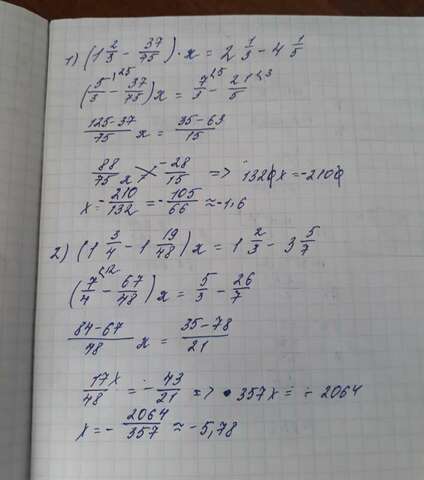 1) (1 2/3 - 37/75) · x = 2 1/3 - 4 1/5
(5/3 ^25 - 37/75) x = 7/3 ^5 - 21/5 ^3
125-37/75 x = 35-63/15
88/75 x = -28/15 => 1320x = -2100
x = -210/132 = -105/66 ≈ -1,6
2) (1 3/4 - 1 19/48) x = 1 2/3 - 3 5/7
(7/4 ^12 - 67/48) x = 5/3 - 26/7
84-67/48 x = 35-78/21
17x/48 = -43/21 => 357x = -2064
x = -2064/357 ≈ -5,78